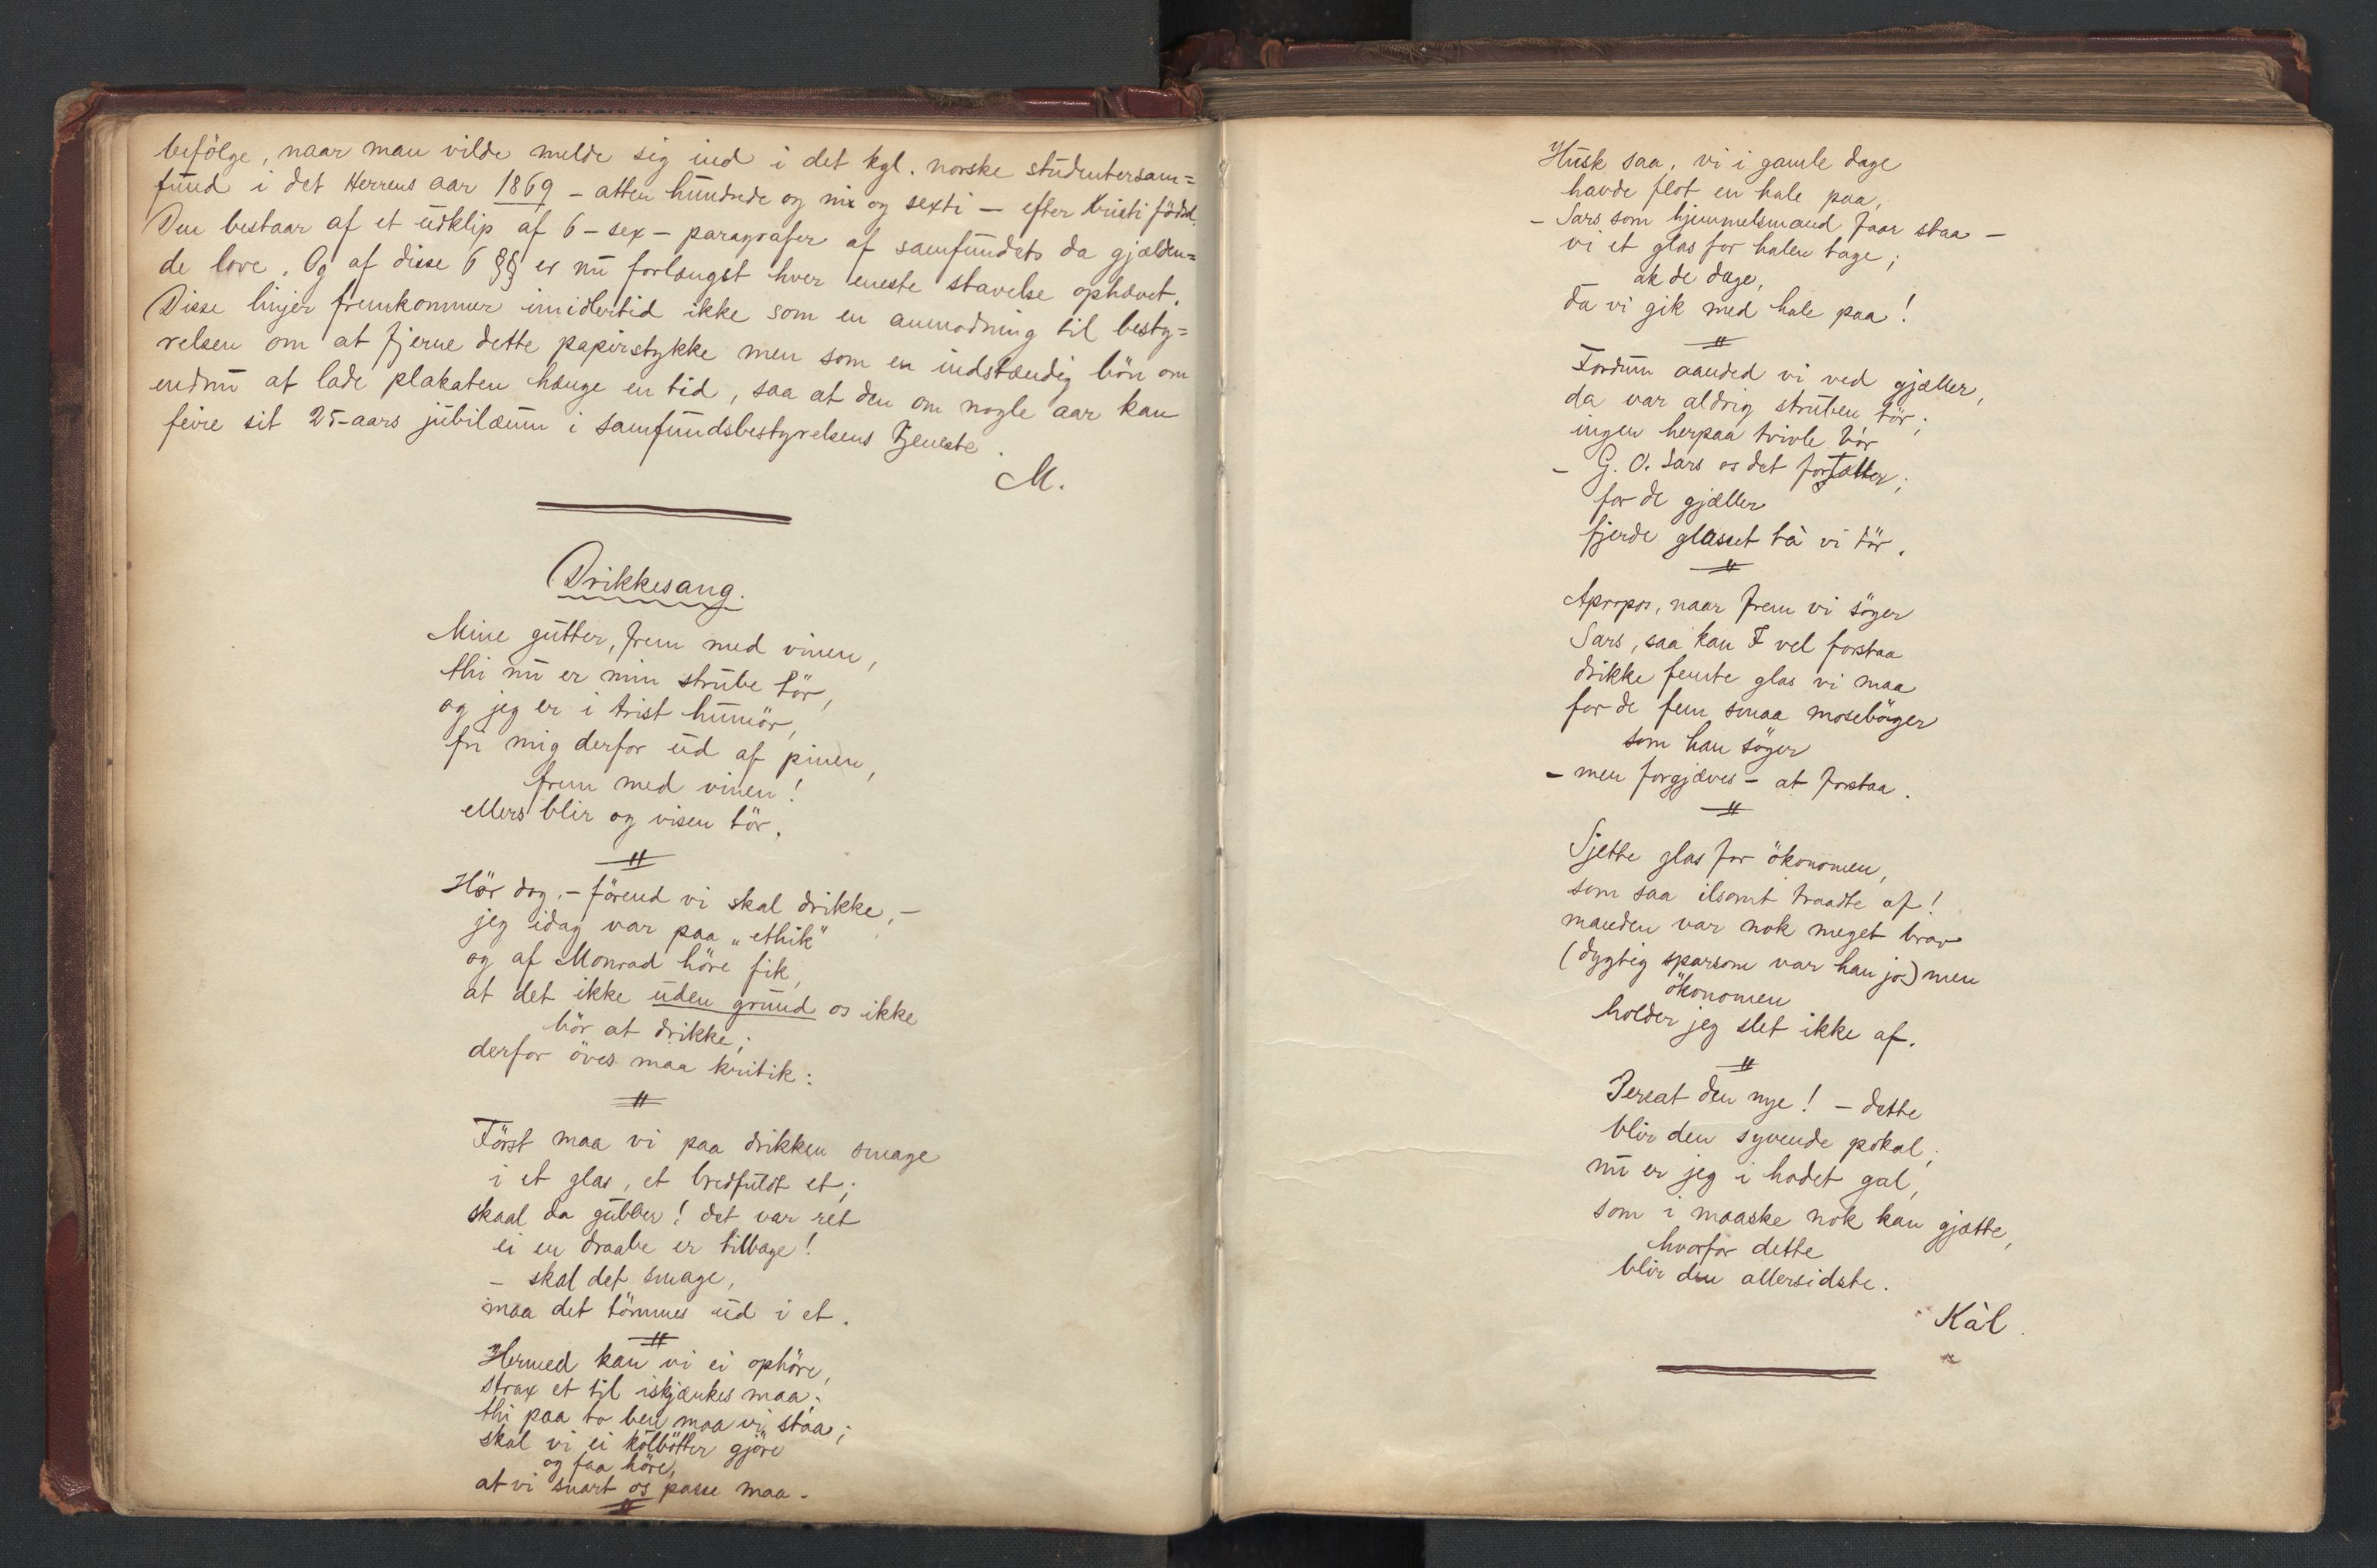 befölge, naar man vilde melde sig ind i det kgl. norske studentersam=
fund i det Herrens aar 1869 – atten hundrede og ni og sexti – efter Kristi födsel.
Den bestaar af et udklip af 6 – sex – paragrafer af samfundets da gjælden=
de love. Og af disse 6 §§ er nu forlængst hver eneste stavelse ophævet.
Disse linjer fremkommer imidlertid ikke som en anmodning til besty=
relsen om at fjerne dette papirstykke men som en indstændig bön om
endnu at lade plakaten hænge en tid, saa at den om nogle aar kan
feire sit 25-aars jubilæum i samfundsbestyrelsens tjeneste.
M.
Drikkesang.
Mine gutter, frem med vinen,
thi nu er min strube tör,
og jeg er i trist humör,
fri mig derfor ud af pinen,
frem med vinen!
ellers blir og visen tör.
Hör dog, – förend vi skal drikke, –
jeg idag var paa „ethik"
og af Monrad höre fik,
at det ikke uden grund os ikke
bör at drikke;
derfor öves maa kritik:
Först maa vi paa drikken smage
i et glas, et bredfuldt et;
skaal da gubber! det var ret
ei en draabe er tilbage!
– skal det smage,
maa det tömmes ud i et.
Hermed kan vi ei ophöre,
strax et til iskjænkes maa;
thi paa to ben maa vi staa;
skal vi ei kolbötter gjöre
og faa höre,
at vi snart os passe maa.
Husk saa, vi i gamle dage
havde flot en hale paa,
– Sars som hjemmelsmand faar staa –
vi et glas for halen tage;
ak de dage,
da vi gik med hale paa!
Fordum aanded vi ved gjæller,
da var aldrig struben tör;
ingen herpaa tvivle bör
– G. O. Sars os det fortæller;
for de gjæller
fjerde glasset ta vi tör.
Apropos, naar frem vi söger
Sars, saa kan I vel forstaa
drikke femte glas vi maa
for de fem smaa moseböger
som han söger
– men forgjæves – at forstaa.
Sjette glas for ökonomen,
som saa ilsomt traadte af!
manden var nok meget brav
(dygtig sparsom var han jo) men
ökonomen
holder jeg slet ikke af.
Pereat den nye! – dette
blir den syvende pokal;
nu er jeg i hodet gal,
som i maaske nok kan gjætte,
hvorfor dette
blir den allersidste.
Kàl.